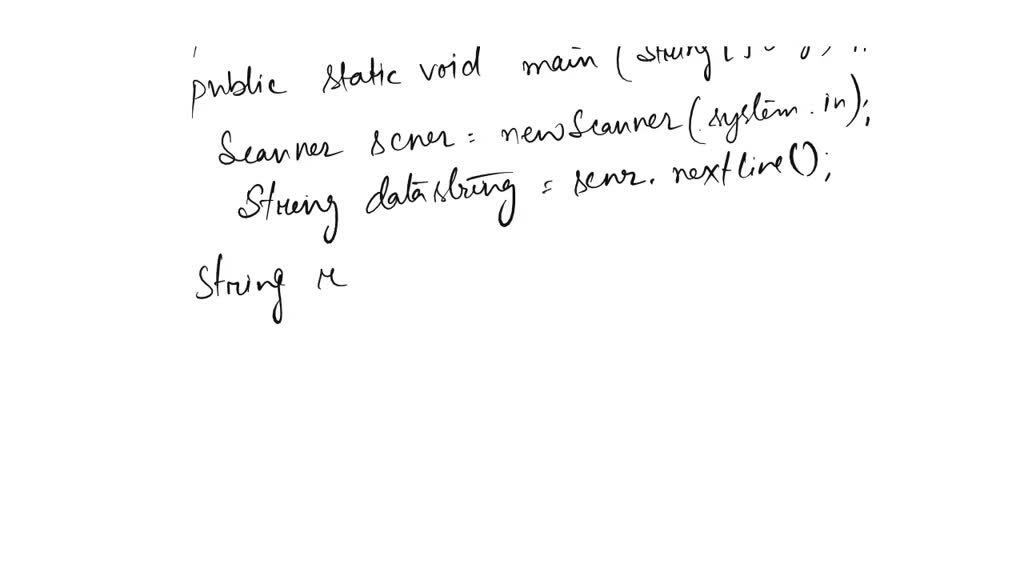 public static void main (String[
Scanner scner = new Scanner(system.in);
String datastring = scnr. nextline();
String r